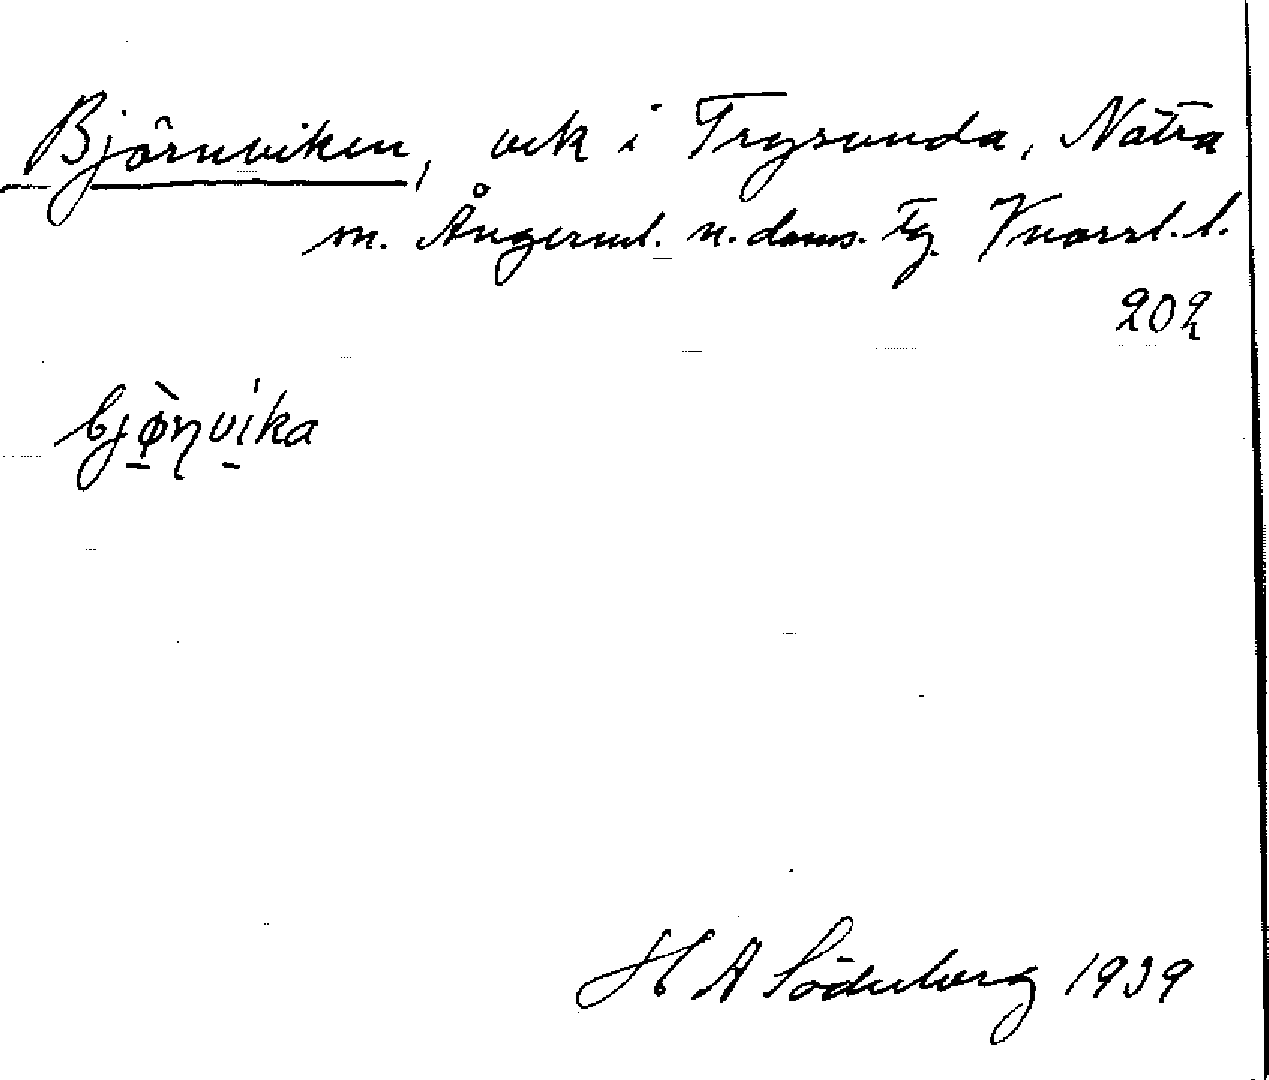 Björnviken, vik i Trysunda, Nätra
m. Ångerml. n. doms. Fg. Vnorrl. l.
202
bjø̀ṇvika
H A Söderberg 1939